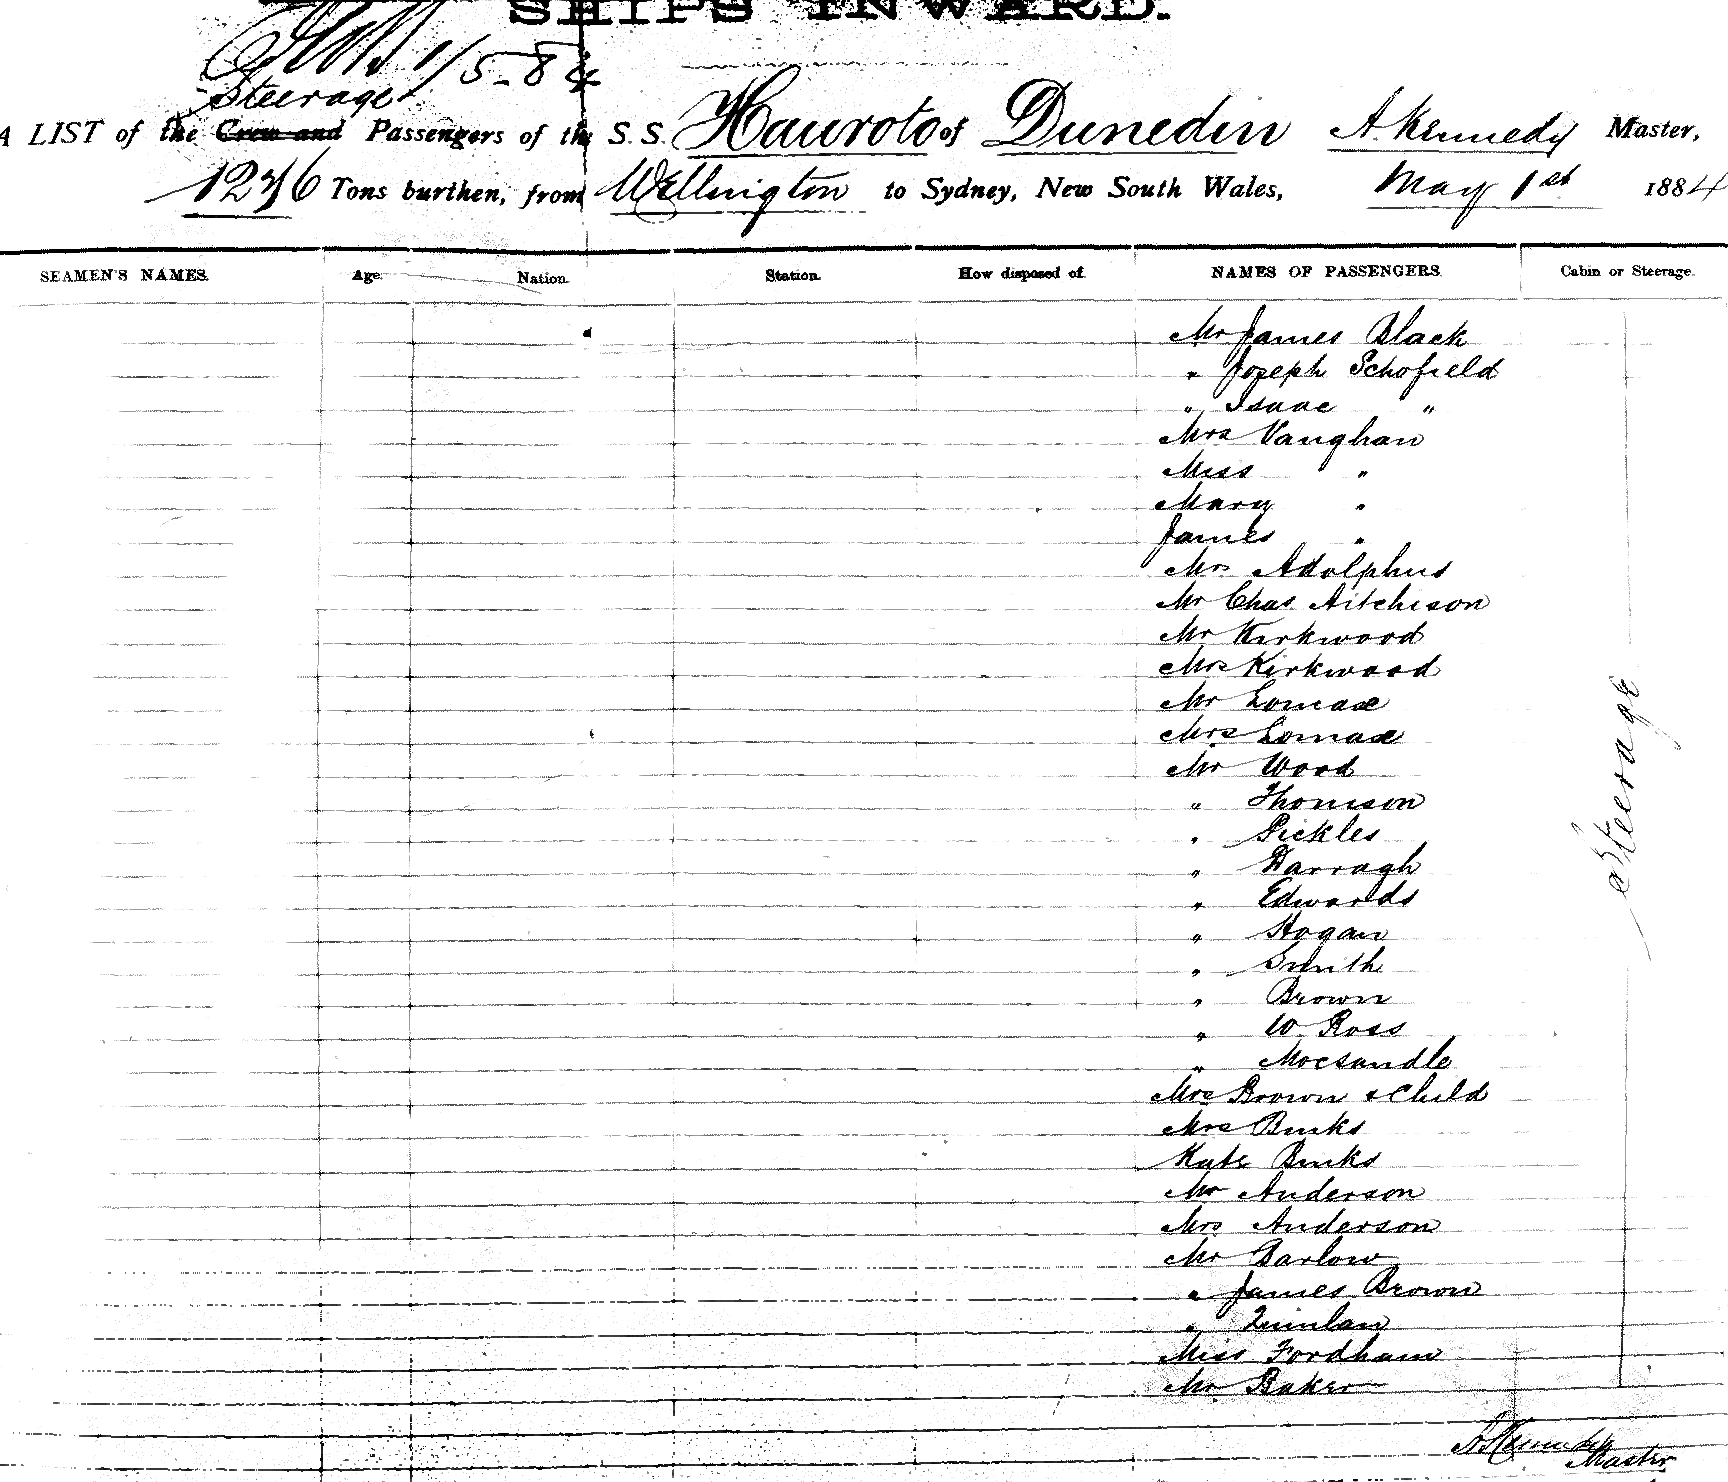 SHIPS INWARD.
1/5-84
Steerage
A LIST of the Crew and Passengers of the S.S. Hauroto of Dunedin A. Kennedy Master,
1276 Tons burthen, from Wellington to Sydney, New South Wales, May 1st 1884
SEAMEN'S NAMES. Age. Nation. Station. How disposed of. NAMES OF PASSENGERS. Cabin or Steerage.
Mr James Black
" Joseph Schofield
" Isaac "
Mrs Vaughan
Miss "
Mary "
James "
Mrs Adolphus
Mr Chas Aitchison
Mr Kirkwood
Mrs Kirkwood
Mr Lomax
Mrs Lomax
Mr Wood
" Thomson
" Pickles
" Darragh
" Edwards
" Hogan
" Smith
" Brown
" W Ross
"
Mrs Brown & Child
Mrs Binks
Kate Binks
Mr Anderson
Mrs Anderson
Mr Barlow
" James Brown
" Quinlan
Miss Fordham
Mr Baker
Steerage
A Kennedy
Master